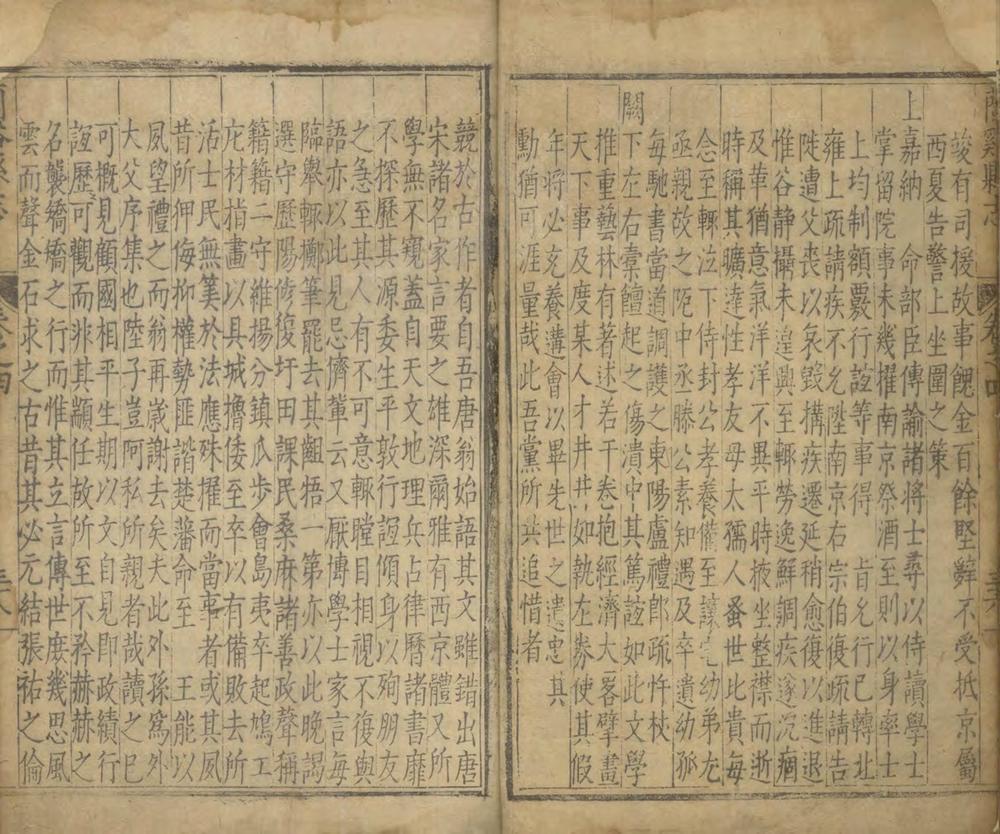 竣有司援故事餽金百餘堅辭不受抵京屬
西夏告警上坐圍之策
上嘉納　命部臣傳諭諸將士尋以侍讀學士
掌留院事未幾擢南京祭酒至則以身率士
上均制額覈行誼等事得　旨允行已轉北
雍上疏請疾不允陞南京右宗伯復疏請告
陡遭父喪以哀毀搆疾遷延稍愈復以進退
惟谷静攝未遑興至輒勞逸鮮調疾遂沉痼
及革猶意氣洋洋不異平時掖坐整襟而逝
時稱其曠達性孝友母太孺人蚤世比貴每
念至輒泣下侍封公孝養備至讓宅幼弟尤
亟親故之阨中丞滕公素知遇及卒遺幼孤
每馳書當道調護之東陽盧禮郎疏忤杖
闕下左右橐饘起之傷潰中其篤誼如此文學
推重藝林有著述若干卷抱經濟大畧擘畫
天下事及度某人才井井如執左券使其假
年將必充養遘會以畢先世之遺忠　其
勳猶可涯量哉此吾黨所共追惜者
競於古作者自吾唐翁始語其文雖錯出唐
宋諸名家言要之雄深爾雅有西京體又所
學無不窺蓋自天文地理兵占律曆諸書靡
不探歷其源委生平敦行誼傾身以殉朋友
之急至其人有不可意輒瞠目相視不復與
語亦以此見忌儕輩云又厭慱學士家言每
臨舉輒擲筆罷去其齟牾一第亦以此晚謁
選守歷陽修復圩田課民桑麻諸善政聲稱
籍籍二守維揚分鎮瓜歩會島夷卒起鳩工
庀材指畫以具城櫓倭至卒以有備敗去所
活士民無筭於法應殊擢而當事者或其夙
昔所狎侮抑權勢匪諧楚藩命至　王能以
夙望禮之而翁再歲謝去矣夫此外孫為外
大父序集也陸子豈阿私所親者哉讀之已
可概見顧國相平生期以文自見即政績行
誼歷可觀而非其顓任故所至不矜赫赫之
名襲矯矯之行而惟其立言傳世庶幾思風
雲而聲金石求之古昔其必元結張祐之倫